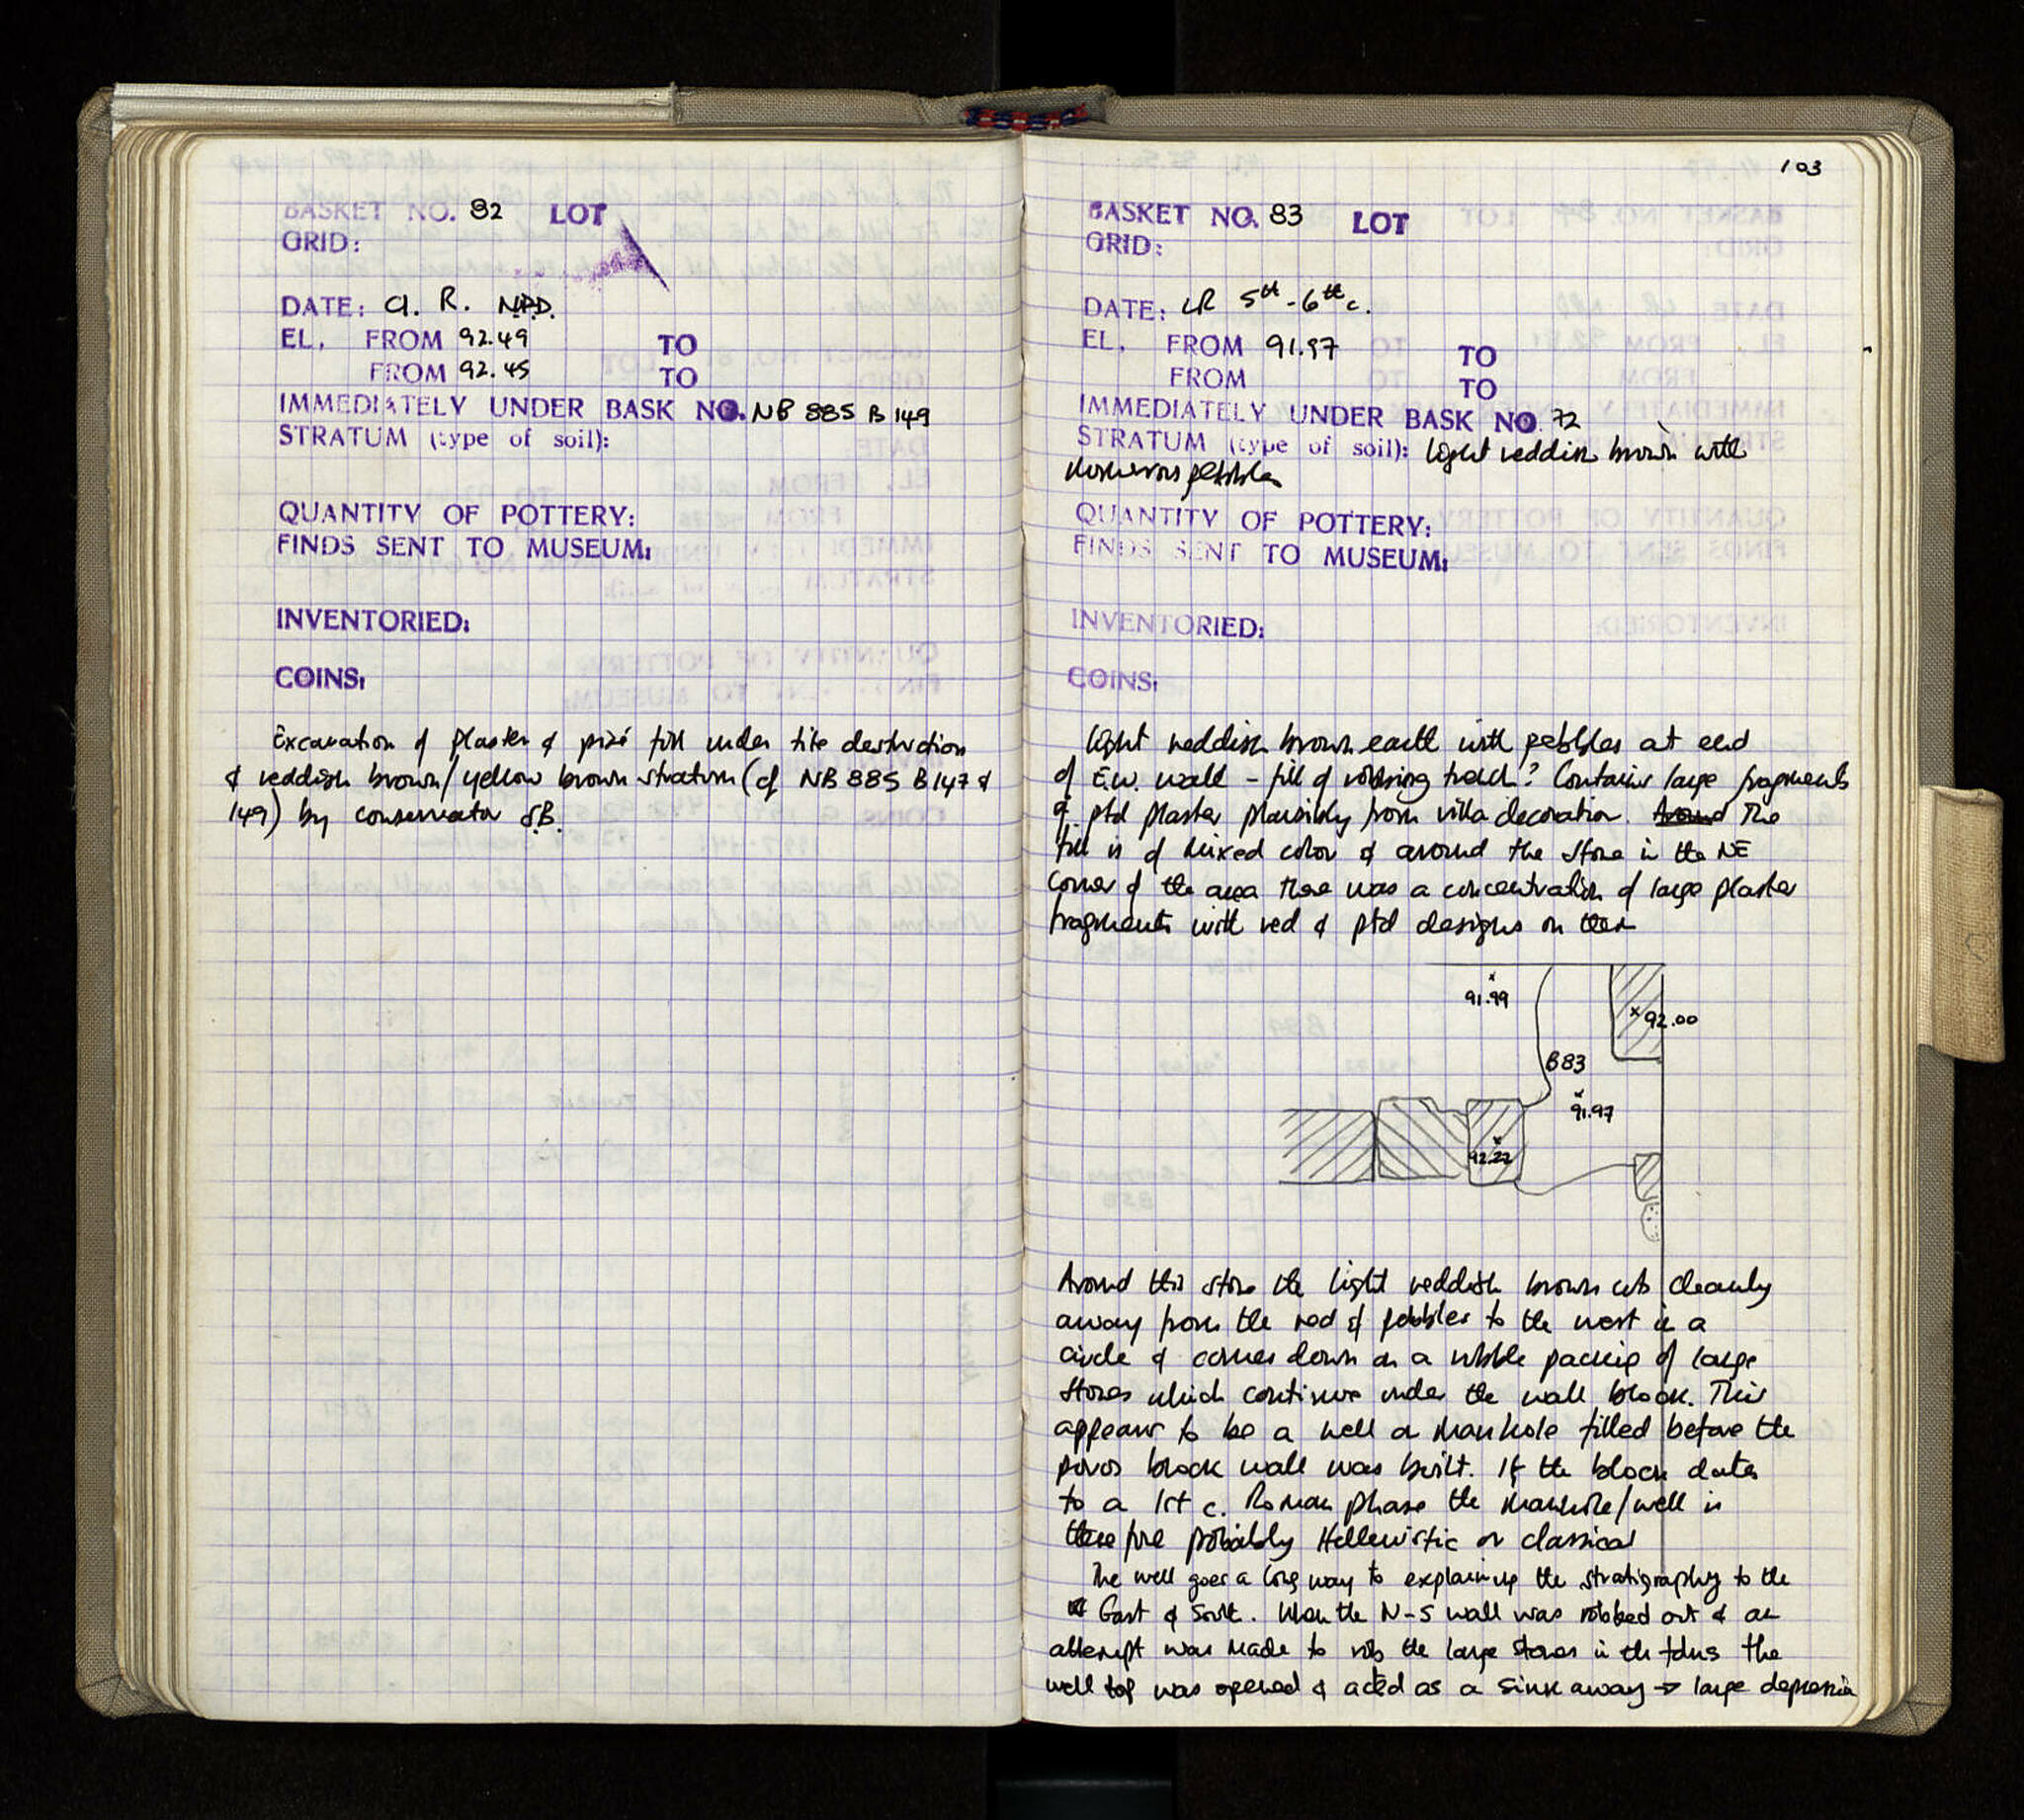 BASKET NO. 82 LOT
GRID:
DATE: Cl. R. NPD.
EL. FROM 92.49 TO
FROM 92.45 TO
IMMEDIATELY UNDER BASK NO. NB 885 B 149
STRATUM (type of soil):
QUANTITY OF POTTERY:
FINDS SENT TO MUSEUM:
INVENTORIED:
COINS:
Excavation of plaster & pisé fill under tile destruction
& reddish brown/yellow brown stratum (cf NB 885 B 147 &
149) by conservator S.B.
103
BASKET NO. 83 LOT
GRID:
DATE: LR 5th - 6th c.
EL. FROM 91.97 TO
FROM TO
IMMEDIATELY UNDER BASK NO. 72
STRATUM (type of soil): light reddish brown with
numerous pebbles
QUANTITY OF POTTERY:
FINDS SENT TO MUSEUM:
INVENTORIED:
COINS:
light reddish brown earth with pebbles at end
of E.W. wall - fill of robbing trench? Contains large fragments
of ptd plaster plausibly from villa decoration. Around The
fill is of mixed color & around the stone in the NE
corner of the area there was a concentration of large plaster
fragments with red & ptd designs on them
91.99
92.00
B83
91.97
92.22
Around this stone the light reddish brown cuts cleanly
away from the red & pebbles to the west in a
circle & comes down on a rubble packing of large
stones which continue under the wall block. This
appears to be a well or manhole filled before the
poros block wall was built. If the block dates
to a 1st c. Roman phase the manhole/well is
therefore probably Hellenistic or classical
The well goes a long way to explaining the stratigraphy to the
East & South. When the N-S wall was robbed out & an
attempt was made to rob the large stones in the the
well top was opened & acted as a sink away → large depression